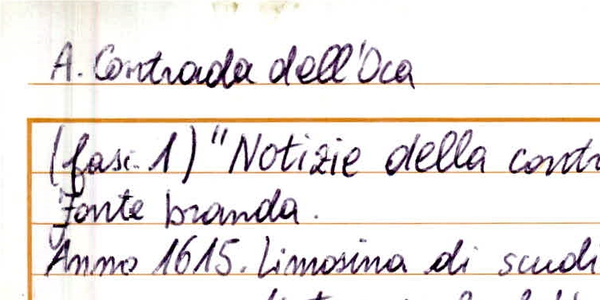 A. Contrada dell'Oca
(fasc. 1) "Notizie della contr
Fonte branda.
Anno 1615. Limosina di scudi